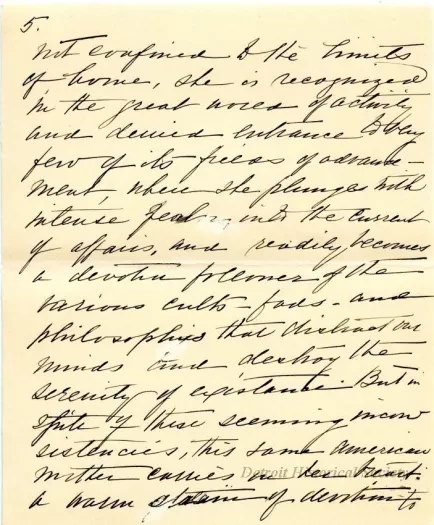 5.
not confined to the limits
of home, she is recognized
in the great world of activity
and denied entrance to very
few of its fields of advance-
ment, where she plunges with
intense zeal, into the current
of affairs, and readily becomes
a devoted follower of the
various cults - fads - and
philosophies that distract our
minds and destroy the
serenity of existance. But in
spite of these seeming incon
sistencies, this same American
mother carries in her heart
Detroit Historical Society
a warm of devotion to